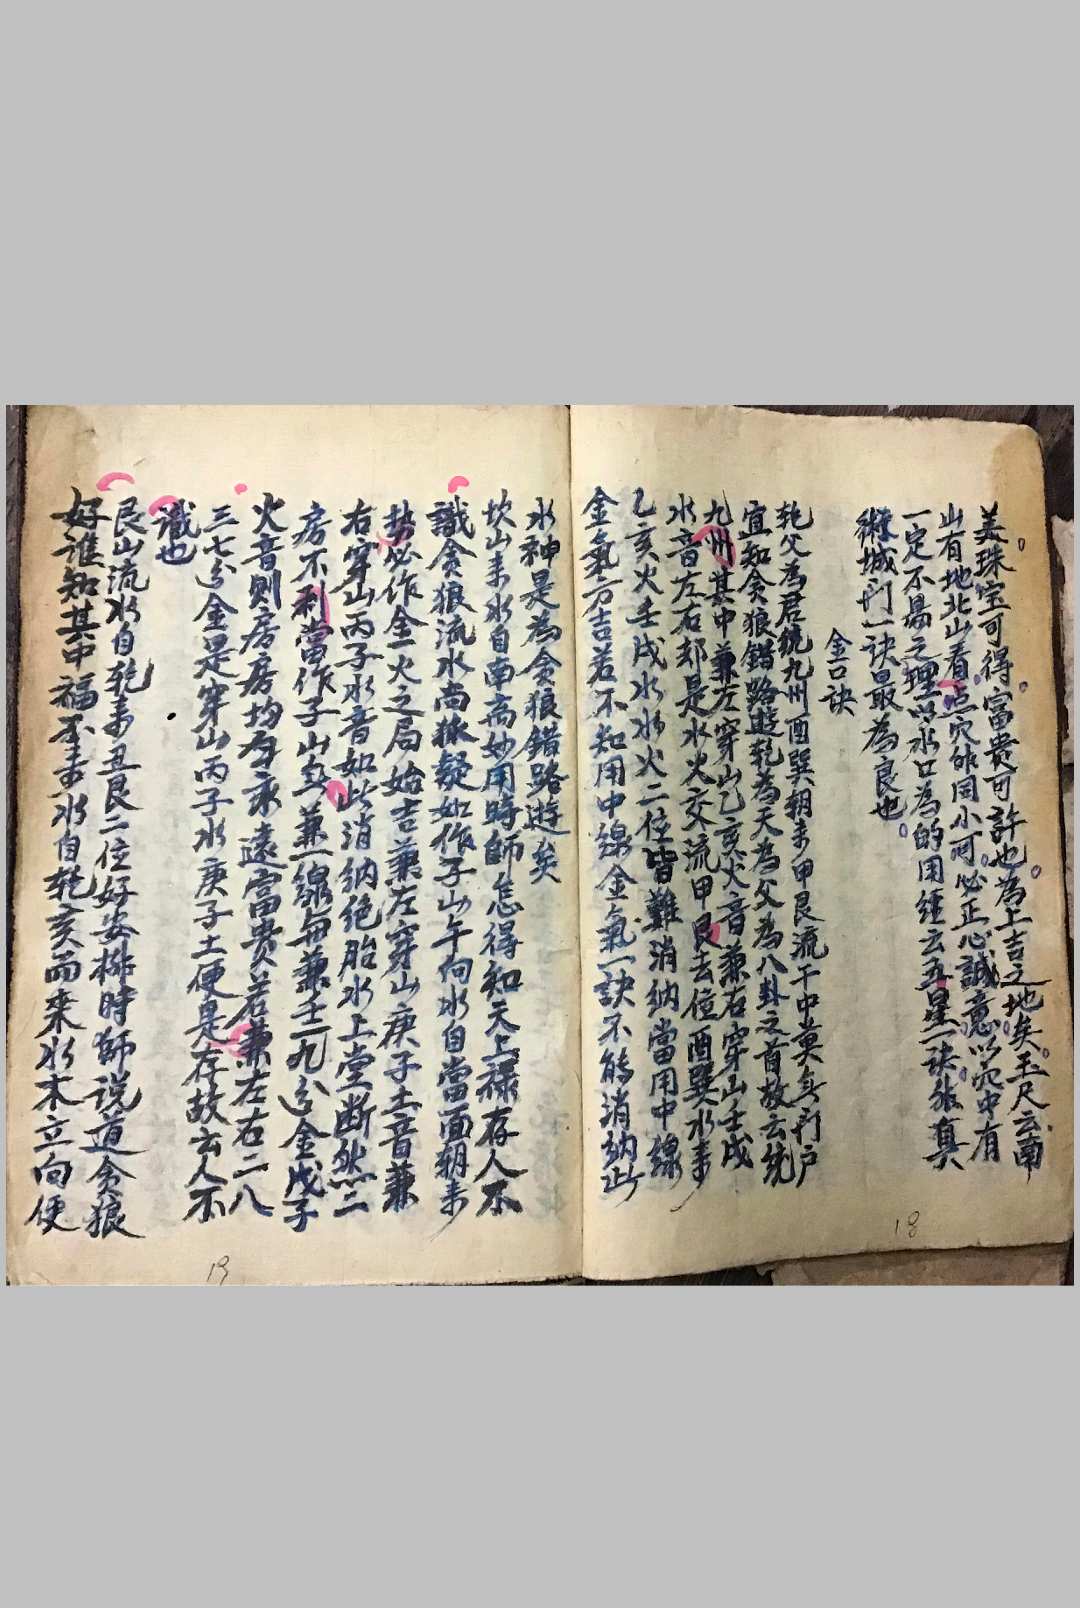 美珠宝可得富貴可許也為上吉之地矣玉尺云南
山有地北山看点穴能同小可必正心誠意以穴中有
一定不易之理以水口為的用經云五星一訣能真
術城門一訣最為良也
金口訣
乾父為君統九州酉巽朝来甲艮流干中莫矣門户
宜知贪狼錯路遊乾為天為父為八卦之首故云統
九州其中兼左穿山乙亥火音兼右穿山壬戌
水音左右却是水火交流甲艮去位酉巽水来
乙亥火壬戌水水火二位皆難消納當用中線
金氣方吉若不知用中線金氣一訣不能消納此
水神是為贪狼錯路遊矣
坎山来水自南高妙用時師怎得知天上禄存人不
識贪狼流水尚狐疑如作子山午向水自當面朝来
势必作金火之局始吉兼左穿山庚子土音兼
右穿山丙子水音如此消納绝胎水上堂断然二
房不利當作子山兼一線每兼壬一九分金戊子
火音则房房均匀永遠富贵若兼左右二八
三七分金是穿山丙子水庚子土便是存故云人不
識也
艮山流水自乾来丑艮二位好安排時師説道贪狼
好誰知其中福不来水自乾亥而来水木立向便